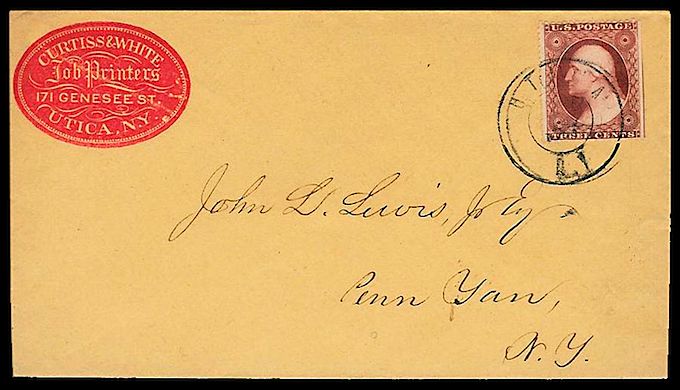 CURTISS & WHITE
Job Printers
171 GENESEE ST.
UTICA, N.Y.
U.S. POSTAGE
THREE CENTS
UTICA
John L. Lewis, Jr Esq
Penn Yan,
N.Y.